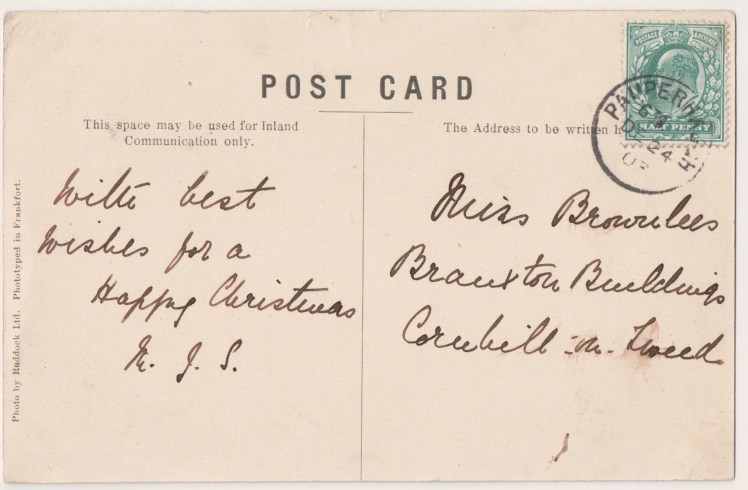 POST CARD
POSTAGE
HALF PENNY
This space may be used for Inland
Communication only.
The Address to be written
With best
wishes for a
Happy Christmas
M. J. S.
Miss Brownlees
Branxton Buildings
Cornhill-on-Tweed
24
Photo by Ruddock Ltd. Phototyped in Frankfort.